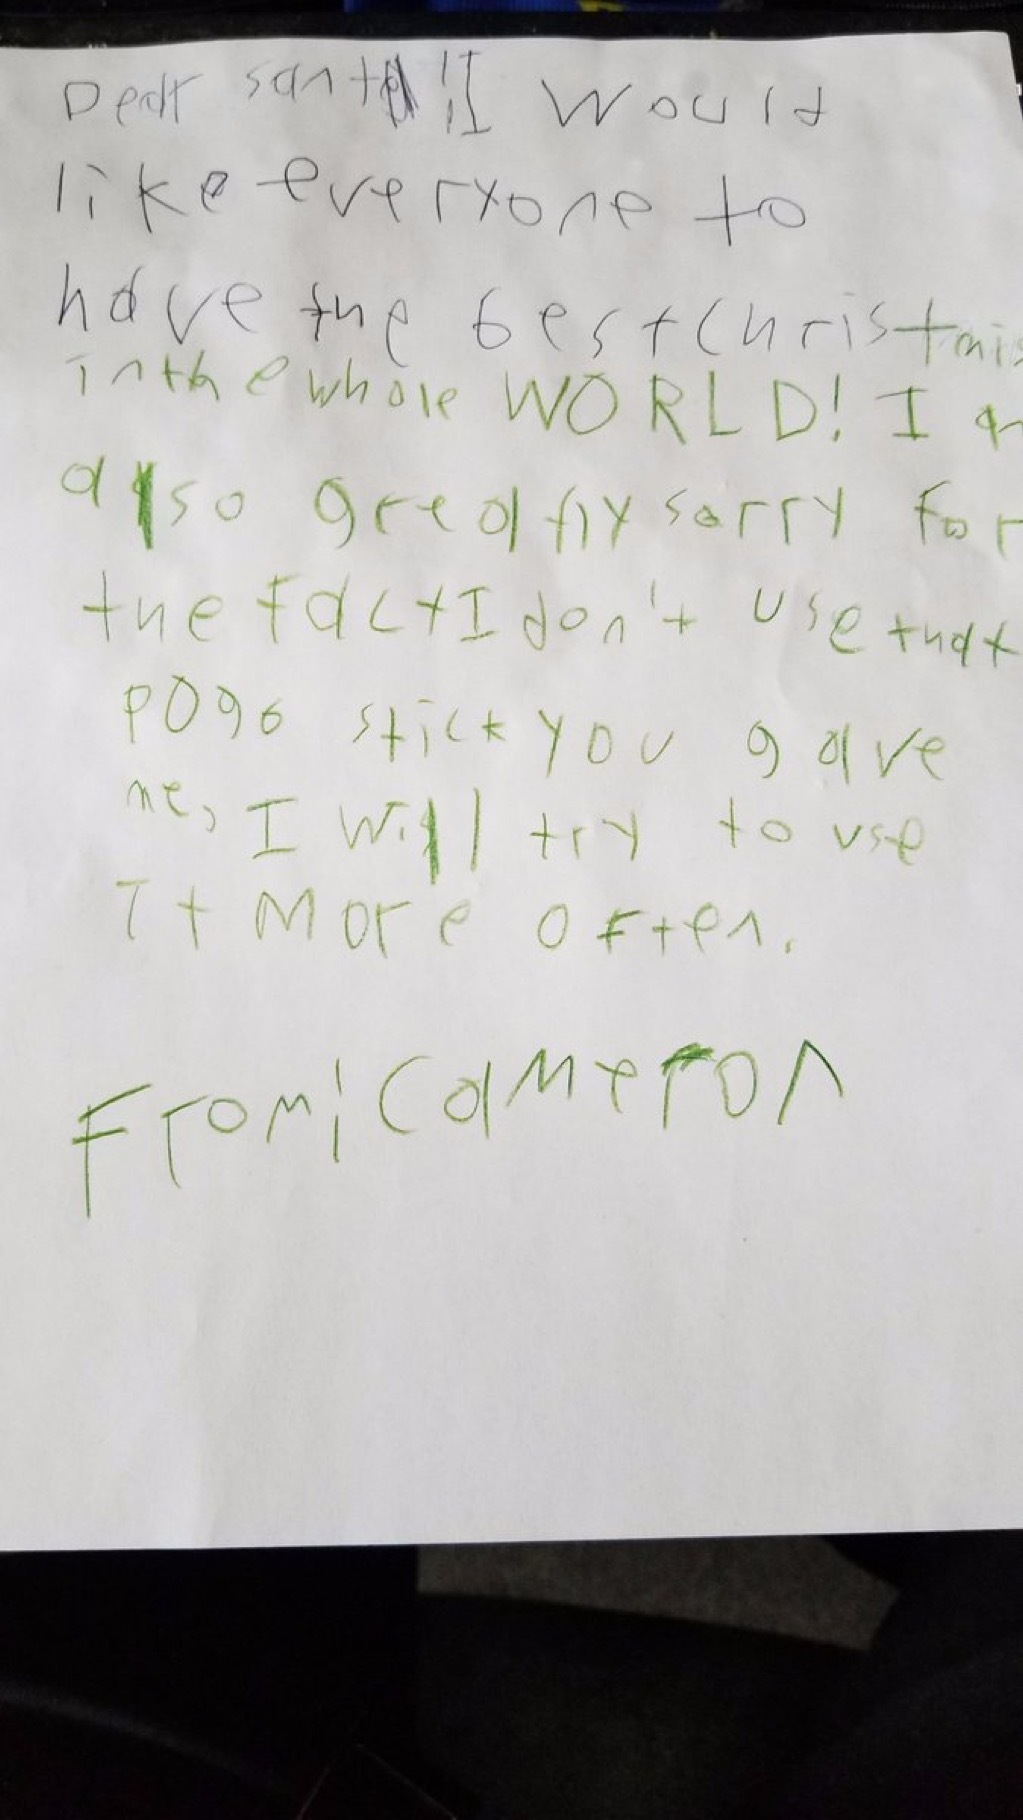 Dear santa!! I would
like everyone to
have the best Christmis
in the whole WORLD! I am
also greatly sorry for
the fact I don't use that
pogo stick you gave
me, I will try to use
It More often.
From: Cameron